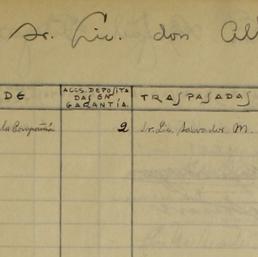 Sr. Lic. don Al
DE
ACCS. DEPOSITA
DAS EN
GARANTÍA.
TRASPASADAS
la Compañía 2 Sr. Lic. Salvador M.